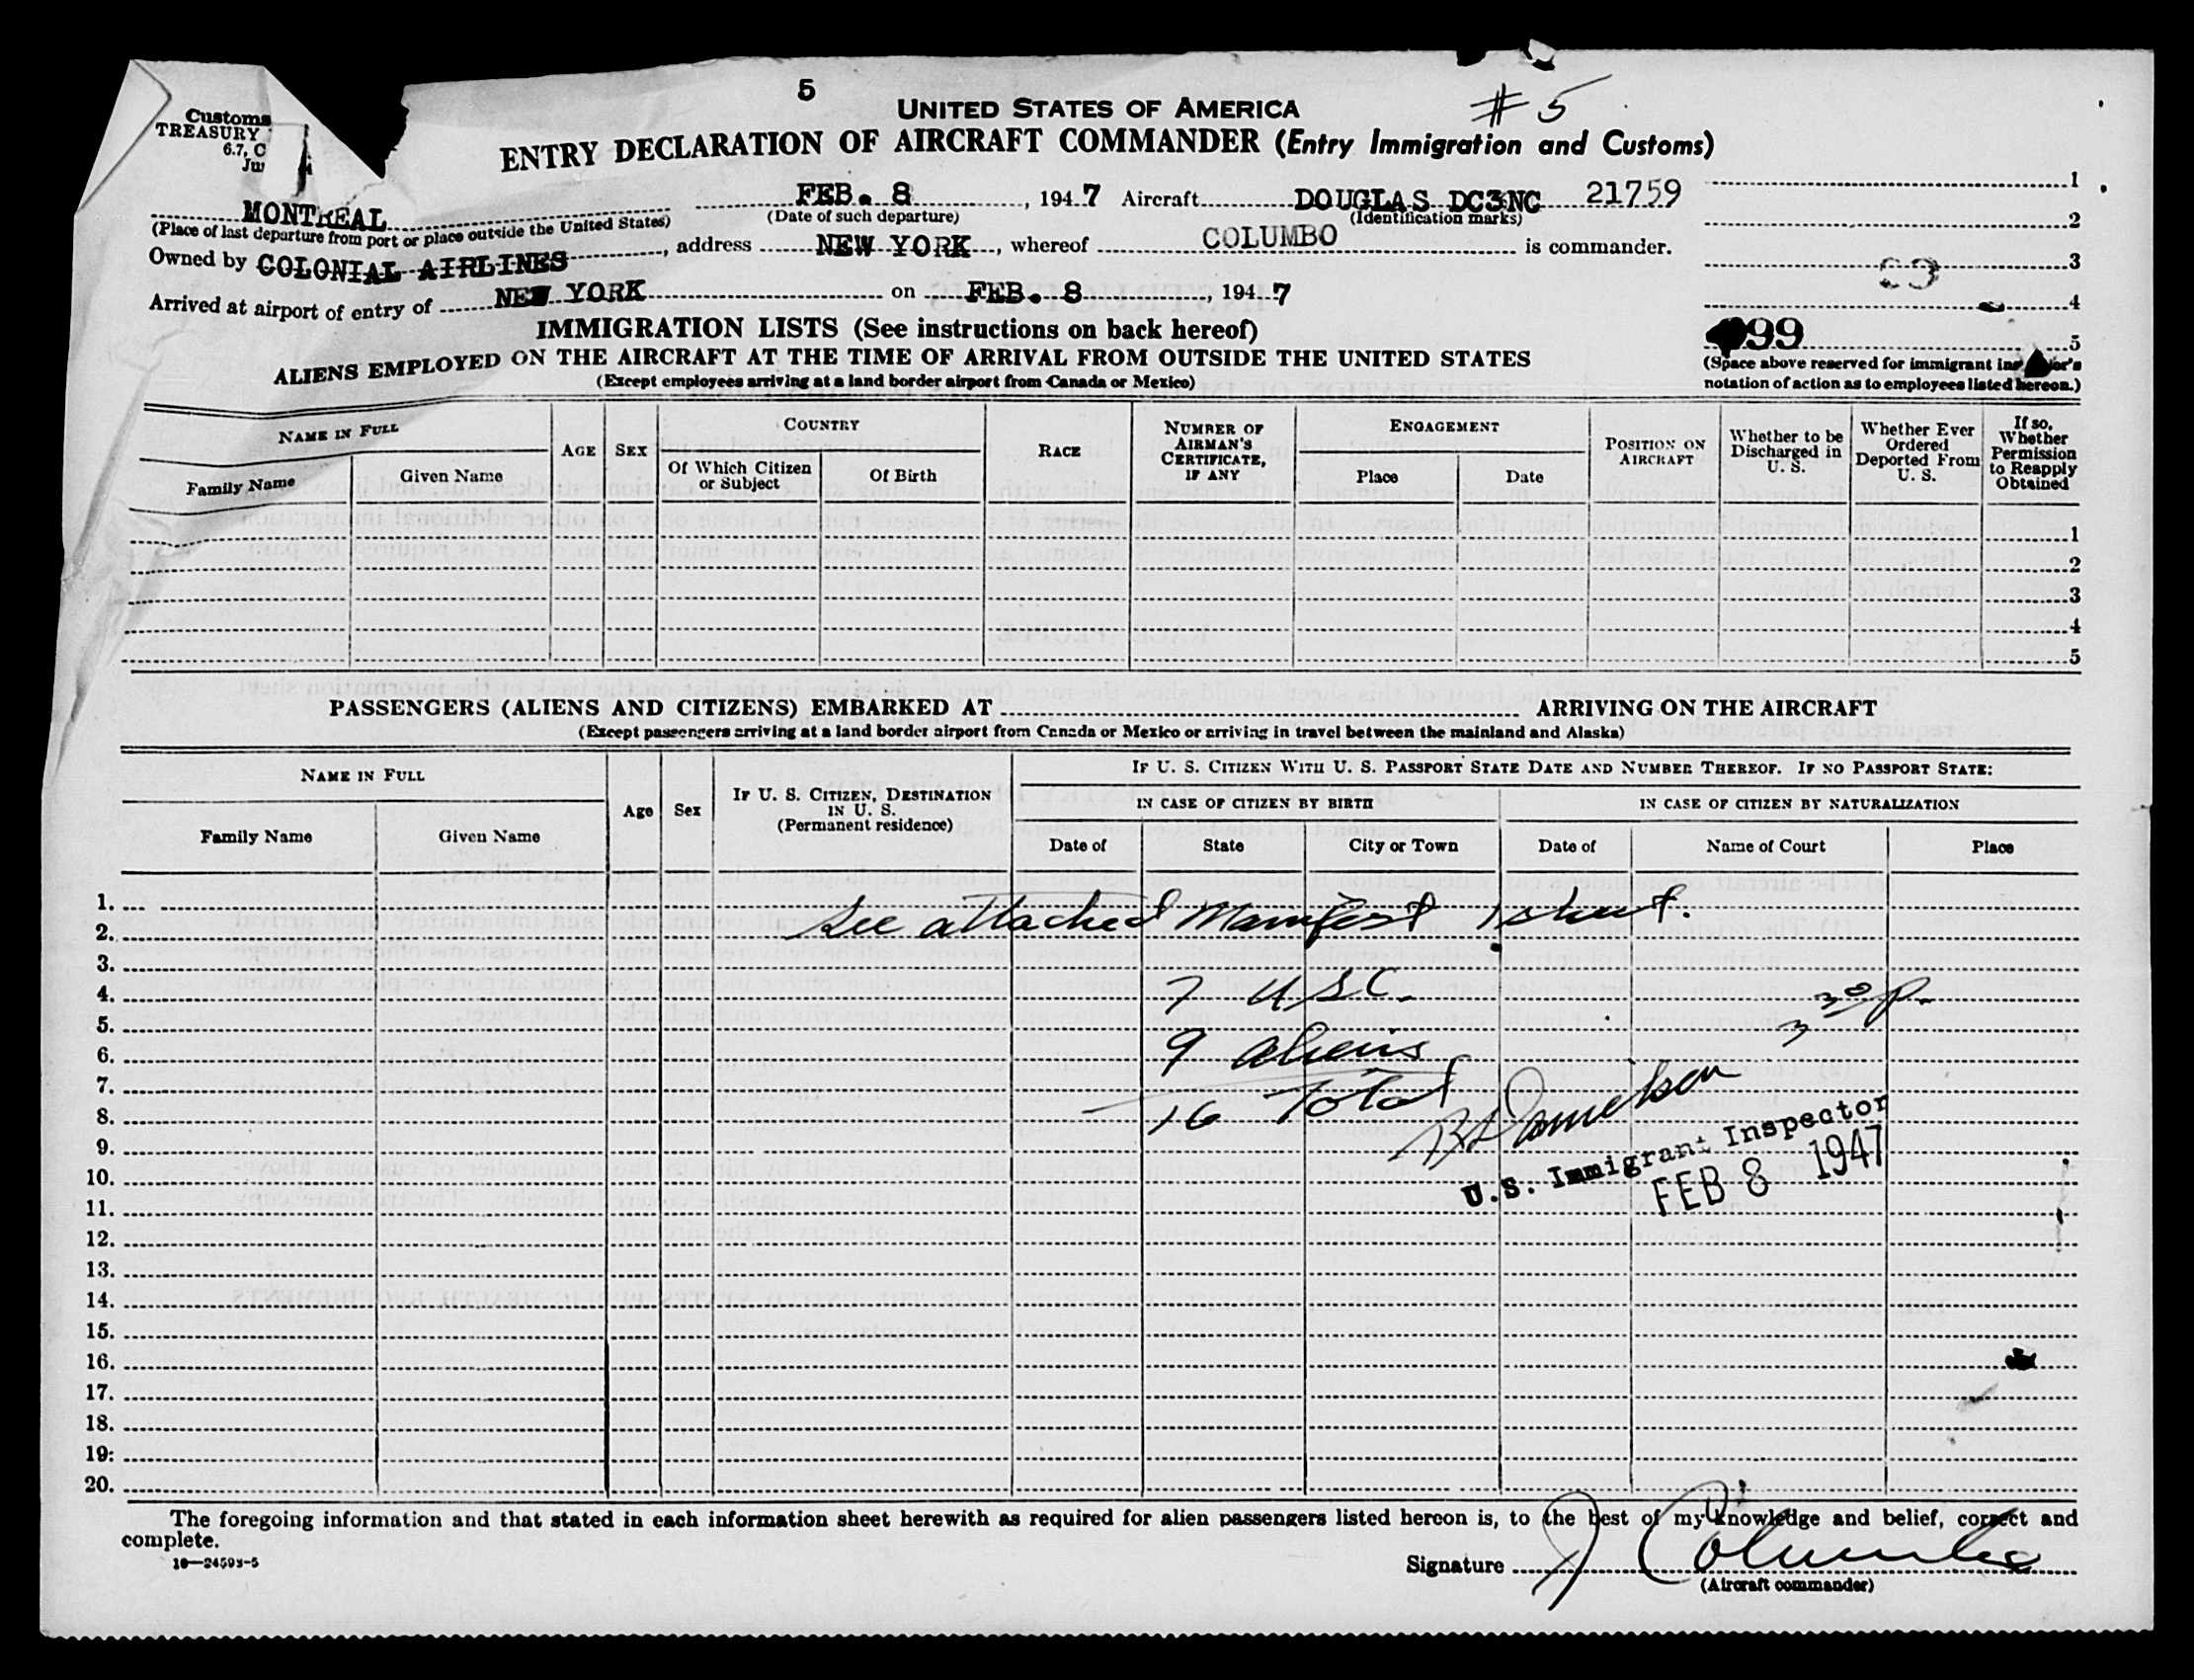 5
# 5
Customs
TREASURY
6.7, C
UNITED STATES OF AMERICA
ENTRY DECLARATION OF AIRCRAFT COMMANDER (Entry Immigration and Customs)
MONTREAL FEB. 8, 1947 Aircraft DOUGLAS DC3NC 21759
(Place of last departure from port or place outside the United States) (Date of such departure) (Identification marks)
Owned by COLONIAL AIRLINES, address NEW YORK, whereof COLUMBO is commander.
Arrived at airport of entry of NEW YORK on FEB. 8, 1947
1
2
3
4
99 5
(Space above reserved for immigrant inspector's
notation of action as to employees listed hereon.)
IMMIGRATION LISTS (See instructions on back hereof)
ALIENS EMPLOYED ON THE AIRCRAFT AT THE TIME OF ARRIVAL FROM OUTSIDE THE UNITED STATES
(Except employees arriving at a land border airport from Canada or Mexico)
NAME IN FULL
Family Name
Given Name
AGE
SEX
COUNTRY
Of Which Citizen
or Subject
Of Birth
RACE
NUMBER OF
AIRMAN'S
CERTIFICATE,
IF ANY
ENGAGEMENT
Place
Date
POSITION ON
AIRCRAFT
Whether to be
Discharged in
U. S.
Whether Ever
Ordered
Deported From
U. S.
If so,
Whether
Permission
to Reapply
Obtained
1
2
3
4
5
PASSENGERS (ALIENS AND CITIZENS) EMBARKED AT ARRIVING ON THE AIRCRAFT
(Except passengers arriving at a land border airport from Canada or Mexico or arriving in travel between the mainland and Alaska)
NAME IN FULL
Family Name
Given Name
Age
Sex
IF U. S. CITIZEN, DESTINATION
IN U. S.
(Permanent residence)
IF U. S. CITIZEN WITH U. S. PASSPORT STATE DATE AND NUMBER THEREOF. IF NO PASSPORT STATE:
IN CASE OF CITIZEN BY BIRTH
IN CASE OF CITIZEN BY NATURALIZATION
Date of
State
City or Town
Date of
Name of Court
Place
1.
2. See attached Manifest 1 sheet.
3.
4. 7 USC. 3 30 p.
5.
6. 9 aliens
7.
8. 16 Total
9.
10. U.S. Immigrant Inspector
11. FEB 8 1947
12.
13.
14.
15.
16.
17.
18.
19:
20.
The foregoing information and that stated in each information sheet herewith as required for alien passengers listed hereon is, to the best of my knowledge and belief, correct and
complete.
Signature J Columbo
(Aircraft commander)